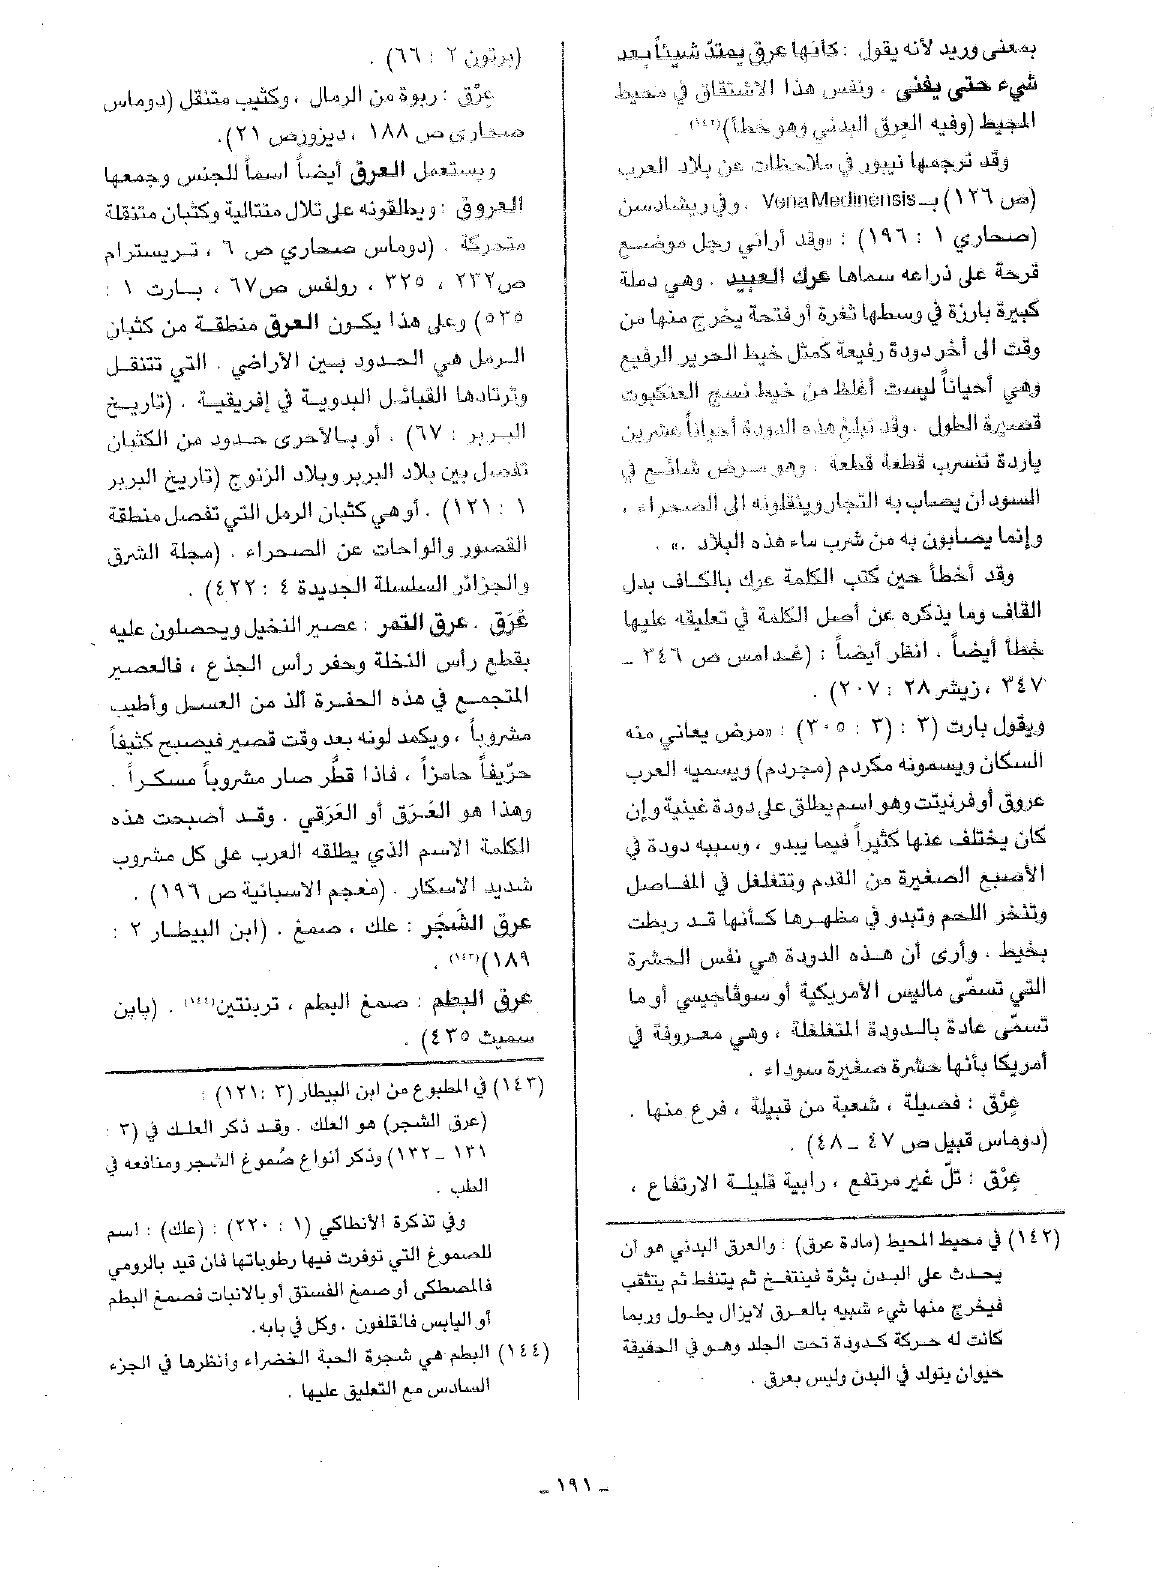 بمعنى وريد لأنه يقول : كأنها عرق يمتدّ شيئاً بعد
شيء حتى يفنى . ونفس هذا الاشتقاق في محيط
المحيط (وفيه العِرق البدني وهو خطأ)(١٤٢) .
وقد ترجمها نيبور في ملاحظات عن بلاد العرب
(ص ١٢٦) بـ Vena Medinensis . وفي ريشادسن
(صحاري ١ : ١٩٦) : «وقد أراني رجل موضع
قرحة على ذراعه سماها عرك العبيد . وهي دملة
كبيرة بارزة في وسطها ثغرة أو فتحة يخرج منها من
وقت الى أخر دودة رفيعة كمثل خيط الحرير الرفيع
وهي أحياناً ليست أغلظ من خيط نسج العنكبوت
قصيرة الطول . وقد تبلغ هذه الدودة أحياناً عشرين
ياردة تنسرب قطعة قطعة . وهو مرض شائع في
السودان يصاب به التجار وينقلونه الى الصحراء ،
وإنما يصابون به من شرب ماء هذه البلاد .» .
وقد أخطأ حين كتب الكلمة عرك بالكاف بدل
القاف وما يذكره عن أصل الكلمة في تعليقه عليها
خطأ أيضاً . انظر أيضاً : (غدامس ص ٣٤٦ ـ
٣٤٧ ، زيشر ٢٨ : ٢٠٧) .
ويقول بارت (٣ : (٣ : ٣٠٥) : «مرض يعاني منه
السكان ويسمونه مكردم (مجردم) ويسميه العرب
عروق أو فرنيتت وهو اسم يطلق على دودة غينية وإن
كان يختلف عنها كثيراً فيما يبدو ، وسببه دودة في
الأصبع الصغيرة من القدم وتتغلغل في المفاصل
وتنخر اللحم وتبدو في مظهرها كأنها قد ربطت
بخيط . وأرى أن هذه الدودة هي نفس الحشرة
التي تسمّى ماليس الأمريكية أو سوڤاجيسي أو ما
تسمّى عادة بالدودة المتغلغلة ، وهي معروفة في
أمريكا بأنها حشرة صغيرة سوداء .
عِرْق : فصيلة ، شعبة من قبيلة ، فرع منها .
(دوماس قبيل ص ٤٧ ـ ٤٨) .
عِرْق : تلّ غير مرتفع ، رابية قليلة الارتفاع ،
(١٤٢) في محيط المحيط (مادة عرق) : والعرق البدني هو أن
يحدث على البدن بثرة فينتفخ ثم يتنفط ثم يتثقب
فيخرج منها شيء شبيه بالعرق لايزال يطول وربما
كانت له حركة كدودة تحت الجلد وهو في الحقيقة
حيوان يتولد في البدن وليس بعرق .
(برتون ٢ : ٦٦) .
عِرْق : ربوة من الرمال ، وكثيب متنقل (دوماس
صحاري ص ١٨٨ ، ديزورص ٢١).
ويستعمل العرق أيضاً اسماً للجنس وجمعها
العروق : ويطلقونه على تلال متتالية وكثبان متنقلة
متحركة . (دوماس صحاري ص ٦ ، تريسترام
ص٢٣٢ ، ٣٢٥ ، رولفس ص٦٧ ، بارت ١ :
٥٣٥) وعلى هذا يكون العرق منطقة من كثبان
الرمل هي الحدود بين الأراضي . التي تتنقل
وترتادها القبائل البدوية في إفريقية . (تاريخ
البربر : ٦٧) . أو بالأحرى حدود من الكثبان
تفصل بين بلاد البربر وبلاد الزنوج (تاريخ البربر
١ : ١٢١) . أو هي كثبان الرمل التي تفصل منطقة
القصور والواحات عن الصحراء . (مجلة الشرق
والجزائر السلسلة الجديدة ٤ : ٤٢٢) .
عَرَق . عرق التمر : عصير النخيل ويحصلون عليه
بقطع رأس النخلة وحفر رأس الجذع ، فالعصير
المتجمع في هذه الحفرة ألذ من العسل وأطيب
مشروباً ، ويكمد لونه بعد وقت قصير فيصبح كثيفاً
حرّيفاً حامزاً ، فاذا قطّر صار مشروباً مسكراً .
وهذا هو العَرَق أو العَرَقي . وقد أصبحت هذه
الكلمة الاسم الذي يطلقه العرب على كل مشروب
شديد الاسكار . (معجم الاسبانية ص ١٩٦) .
عرق الشَجَر : علك ، صمغ . (ابن البيطار ٢ :
١٨٩)(١٤٣) .
عرق البطم : صمغ البطم ، تربنتين(١٤٤) . (باين
سميث ٤٣٥) .
(١٤٣) في المطبوع من ابن البيطار (٣ :١٢١) :
(عرق الشجر) هو العلك . وقد ذكر العلك في (٣ :
١٣١ ـ ١٣٢) وذكر أنواع صُموغ الشجر ومنافعه في
الطب .
وفي تذكرة الأنطاكي (١ : ٢٢٠) : (علك) : اسم
للصموغ التي توفرت فيها رطوباتها فان قيد بالرومي
فالمصطكى أو صمغ الفستق أو بالانبات فصمغ البطم
أو اليابس فالقلفون . وكل في بابه.
(١٤٤) البطم هي شجرة الحبة الخضراء وانظرها في الجزء
السادس مع التعليق عليها .
ـ ١٩١ ـ